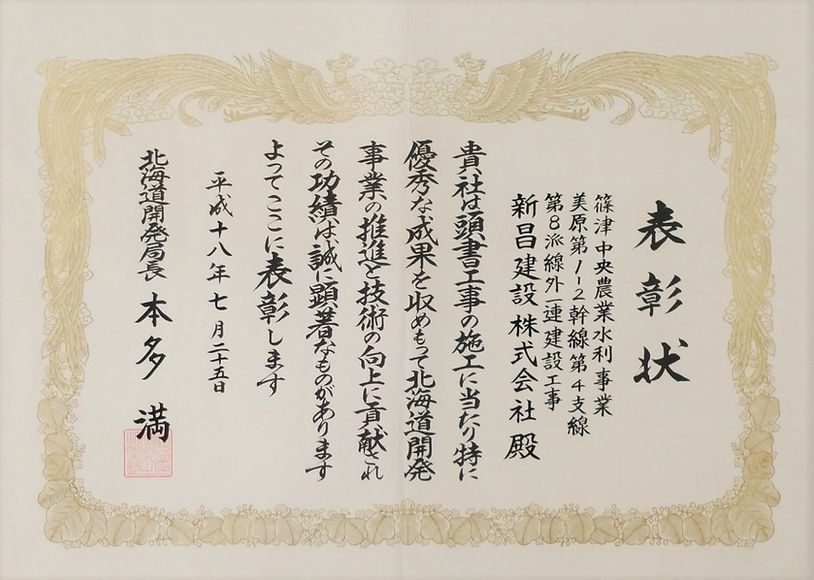 表彰状
篠津中央農業水利事業
美原第1-2幹線第4支線
第8派線外一連建設工事
新昌建設株式会社殿
貴社は頭書工事の施工に当たり特に
優秀な成果を収めもって北海道開発
事業の推進と技術の向上に貢献され
その功績は誠に顕著なものがあります
よってここに表彰します
平成十八年七月二十五日
北海道開発局長 本多満